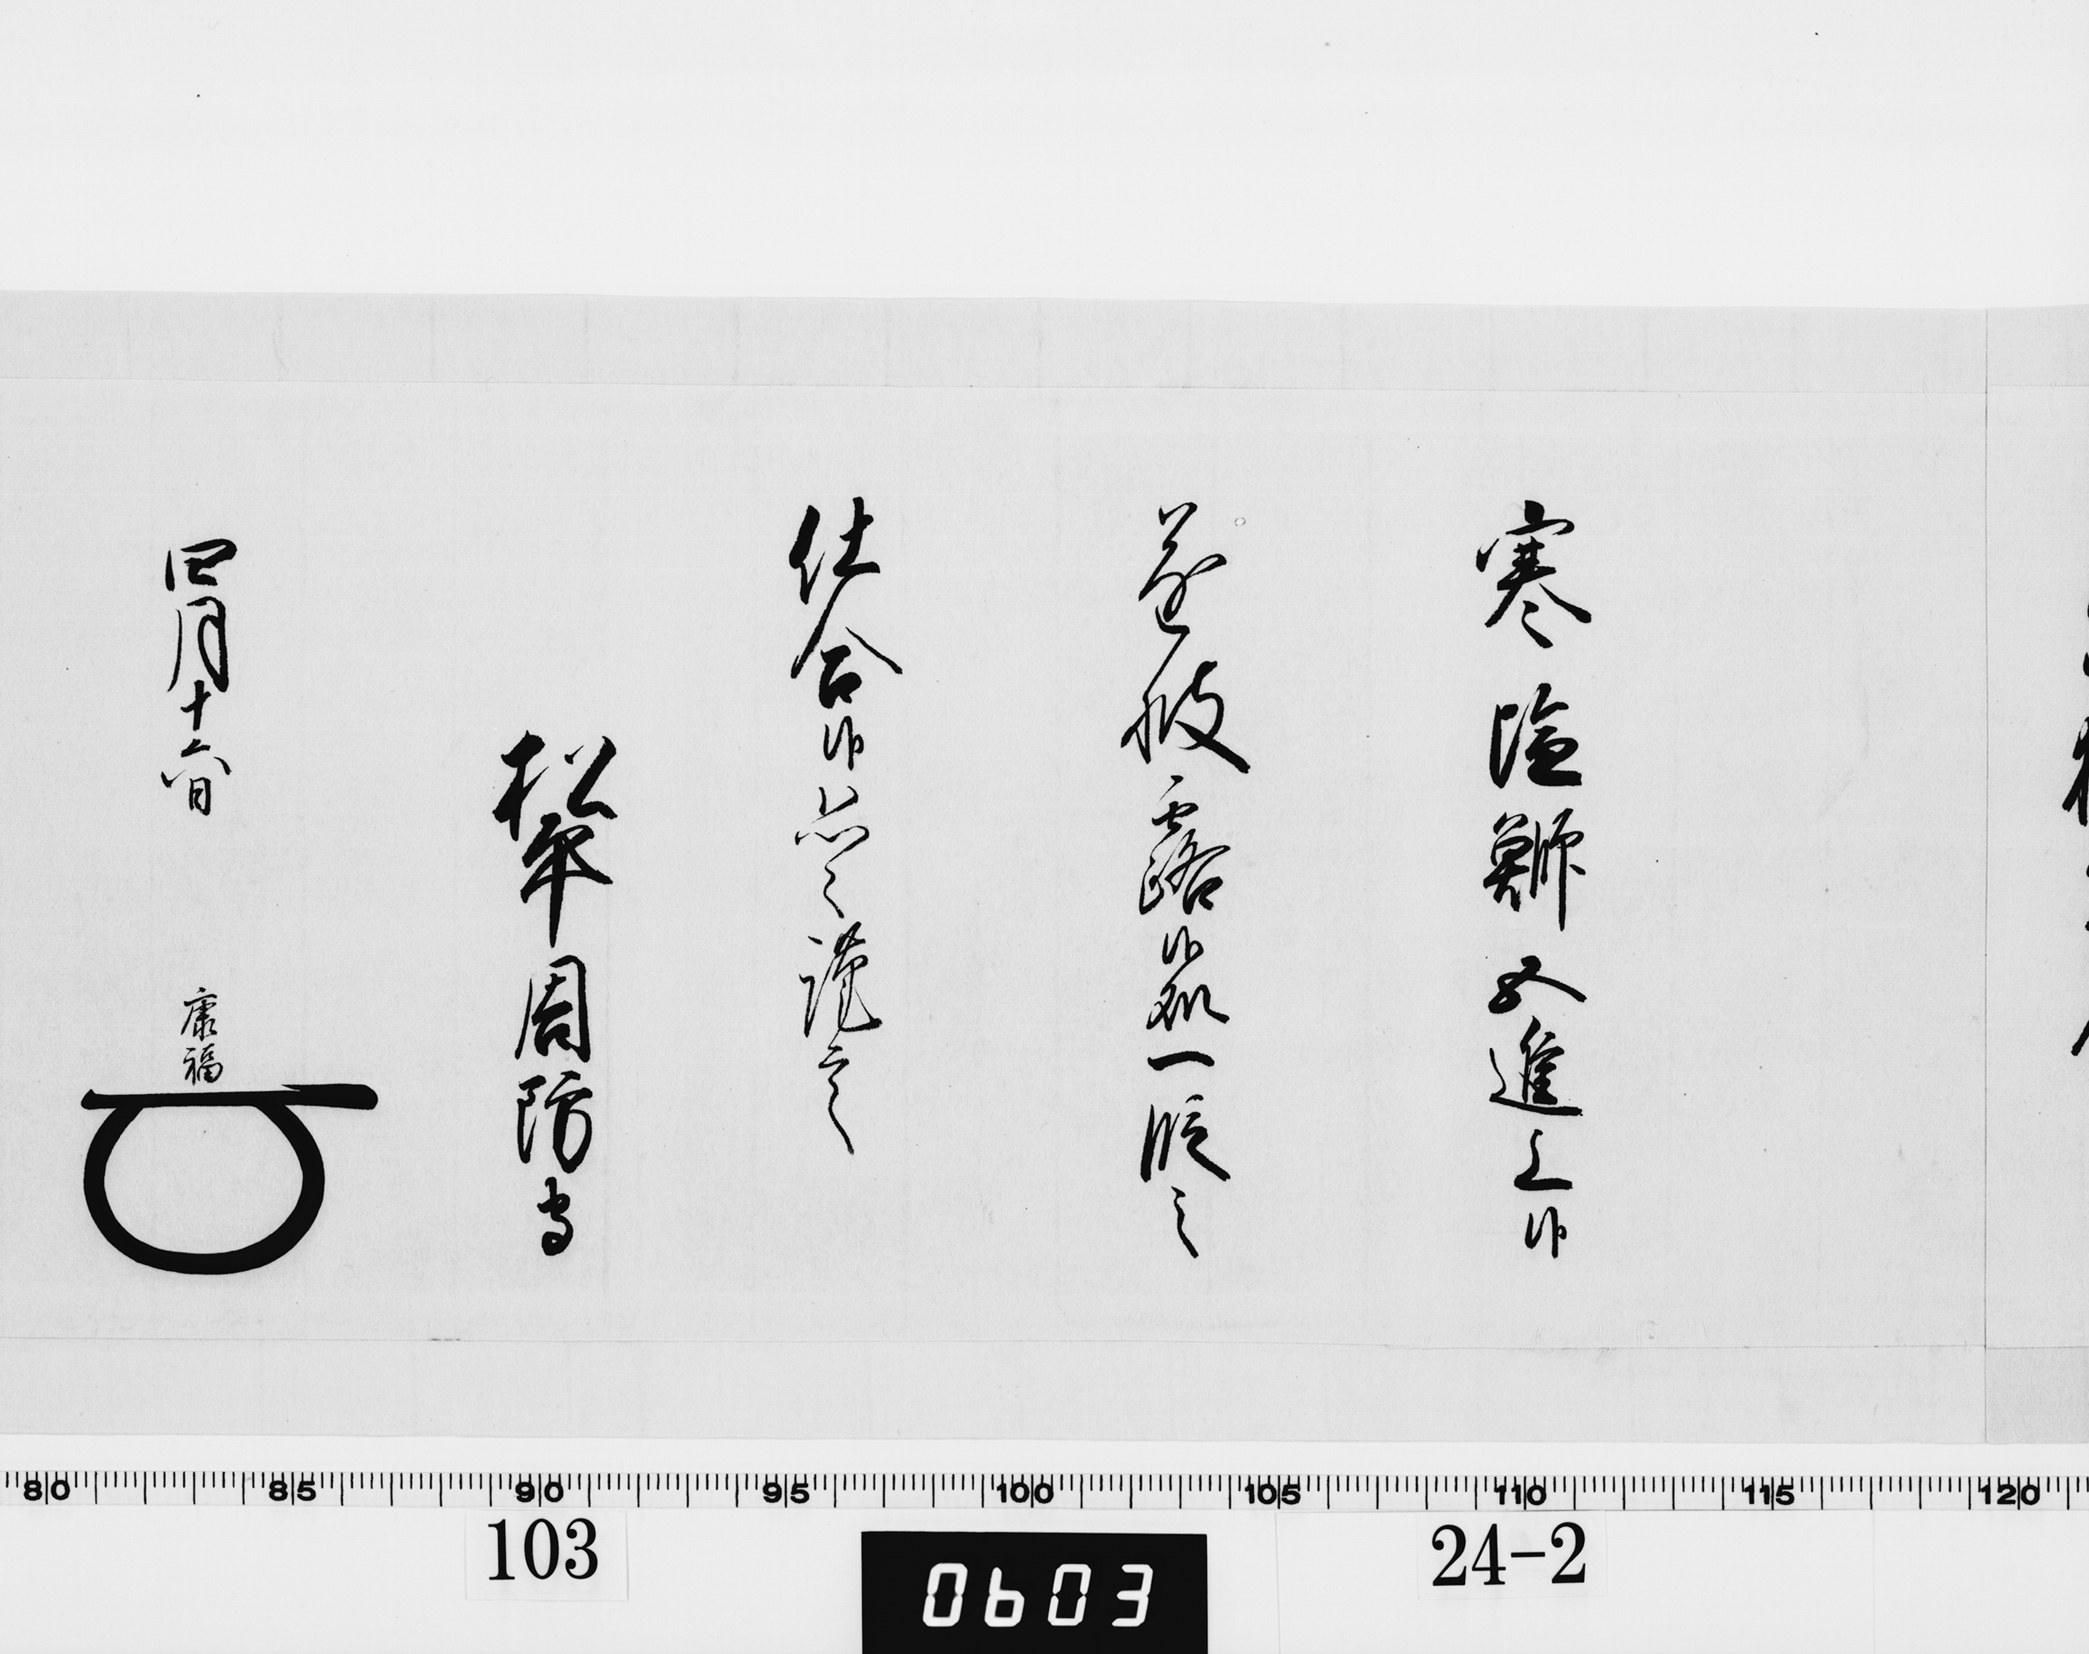 寒塩鰤五進上候
遂披露候処一段之
仕合候恐々謹言
松平周防守
四月十六日 康福
80 85 90 95 100 105 110 115 120
103
0603
24-2